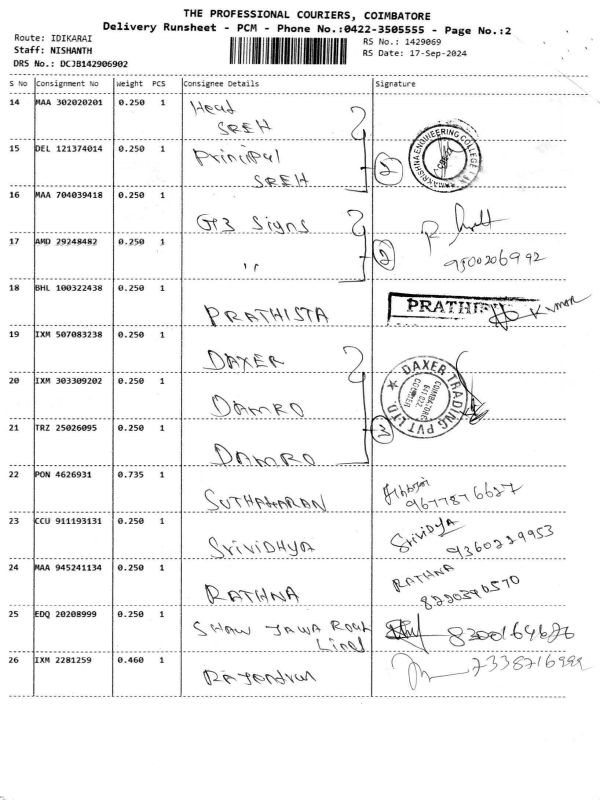 THE PROFESSIONAL COURIERS, COIMBATORE
Delivery Runsheet - PCM - Phone No.:0422-3505555 - Page No.:2
Route: IDIKARAI
RS No.: 1429069
Staff: NISHANTH
RS Date: 17-Sep-2024
DRS No.: DCJB142906902
S No Consignment No Weight PCS Consignee Details Signature
14 MAA 302020201 0.250 1 Head
SREH
15 DEL 121374014 0.250 1 Principal
SREH
2
16 MAA 704039418 0.250 1 GR3 Signs
17 AMD 29248482 0.250 1 "
2
18 BHL 100322438 0.250 1 PRATHISTA Kumar
19 IXM 507083238 0.250 1 DAXER
DAXER TRADING PVT LTD
COIMBATORE
641 022.
COURIER
20 IXM 303309202 0.250 1 DAMRO
21 TRZ 25026095 0.250 1 DAMRO
3
22 PON 4626931 0.735 1 SUTHAHARAN
9677876627
23 CCU 911193131 0.250 1 SriviDHya SriviDYA
9360239953
24 MAA 945241134 0.250 1 RATHNA RATHNA
8220390570
25 EDQ 20208999 0.250 1 SHAW JAWA Road
Lines
8300164676
26 IXM 2281259 0.460 1 Rajendran